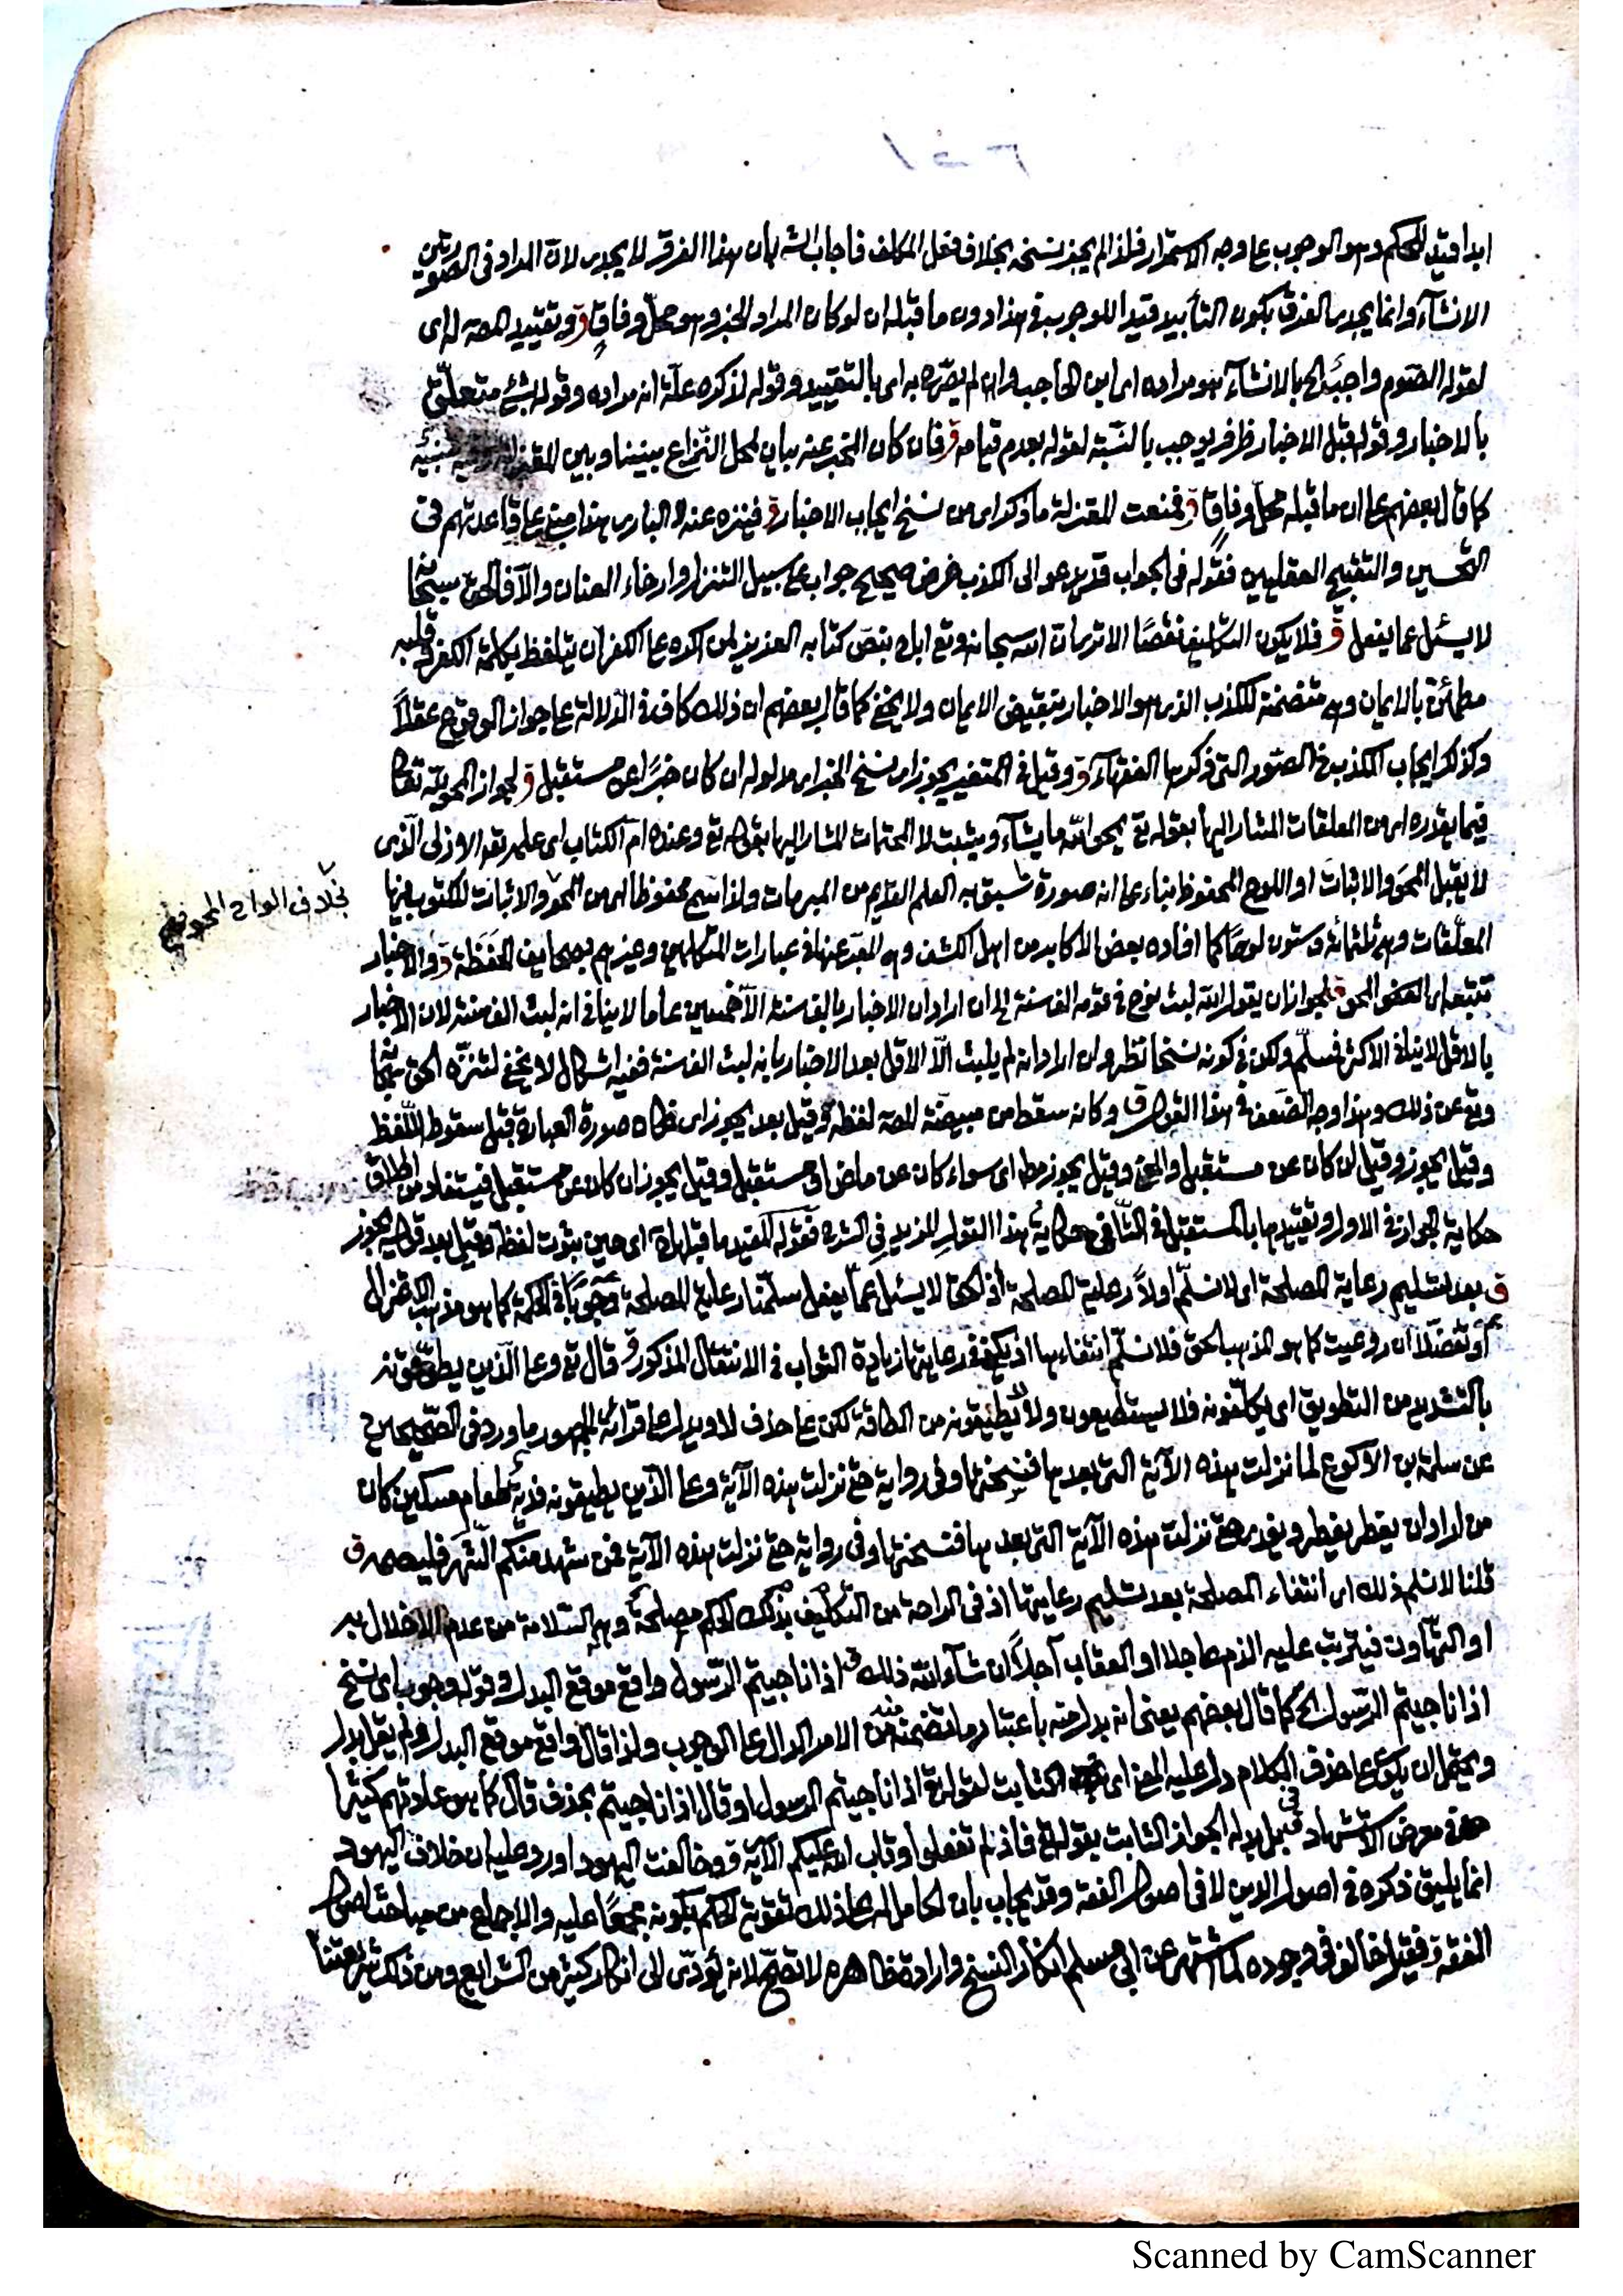 ابدا قيد للحكم وهو الوجوب عا وجه الاستمرار فلذا لم يجز نسخه بخلاف فعل المكلف فاجاب الشه بان هذا الفرق لا يجدى لان المراد فى الصورتين
الانشآء وانما يجدى الفرق بكون التأبيد قيدا للوجوب فى هذا دون ما قبله ان لو كان المراد الخبر وهو محل وفاق ق وتقييد المصه له اى
لقوله الصوم واجب الخ بالانشآء هو مراده اى ابن الحاجب وان لم يصرّح به اى بالتقييد وقوله لذكره علّة انه مراده وقوله بشئ متعلّق
بالاخبار وقوله قبل الاخبار ظرف يوجب بالنسبة لقوله بعدم قيامه ق فان كان المخبر عنه بيان لمحل النزاع بيننا وبين
كما قال بعضهم عا ان ما قبله محل وفاق ق فمنعت المعتزلة ما ذكر اى من نسخ ايجاب الاخبار ق فينزه عنه البارى هذا مبنى عا قاعدتهم فى
التحسين والتقبيح العقليين فقوله فى الجواب قد يدعو الى الكذب غرض صحيح جواب عا سبيل التنزل وارخاء العنان والّا فالحق سبحانه
لا يسئل عما يفعل ق فلا يكون التكليف نقصًا الا ترى ان الله سبحانه وتع اباح بنصّ كتابه العزيز لمن اكره عا الكفر ان يتلفظ بكلمة الكفر وقلبه
مطمئن بالايمان وهى متضمنة للكذب الذى هو الاخبار بنقيض الايمان ولا يخفى كما قال بعضهم ان ذلك كاف فى الدلالة عا جواز الوقوع عقلًا
وكذلك ايجاب الكذب فى الصور التى ذكرها الفقهآء ق وقيل فى المتغير يجوز اى نسخ الخبر اى مدلوله ان كان خبرًا عن مستقبل ق لجواز المحو لله تعالى
فيما يقدره اى من المعلقات المشار اليها بقوله تع يمحو الله ما يشآء ويثبت لا المحتمات المشار اليها بقوله تع وعنده ام الكتاب اى علمه تع الازلى الذى
لا يقبل المحو والاثبات او اللوح المحفوظ بناء عا انه صورة سبق به العلم القديم من المبرمات ولذا سمى محفوظا اى من المحو والاثبات للكتوب فيها
بخلاف الواح المحو فهى
المعلّقات وهى ثلثمائة وستون لوحًا كما افاده بعض الاكابر من اهل الكشف وهى المعبر عنها فى عبارات المتكلمين وغيرهم بصحايف الحفظة ق والاخبار
تتبعه اى المحو ق لجواز ان يقول الله لبث نوح فى قومه الف سنة الخ ان اراد ان الاخبار بالف سنة الّا خمسين عاما لا ينافى انه لبث الف سنة لان الاخبار
بالاقل لا ينافى الاكثر فمسلّم ولكن فى كونه نسخا نظر وان اراد انه لم يلبث الّا الاقل بعد الاخبار بانه لبث الف سنة ففيه اشكال لا يخفى لتنزّه الحق سبحانه
وتع عن ذلك وهذا وجه الضعف فى هذا القول ق وكانه سقط من مبيضة المصه لفظة وقيل بعد يجوز اى فكان صورة العبارة قبل سقوط اللفظ
وقيل يجوز وقيل ان كان عن مستقبل والمعنى وقيل يجوز مط اى سواء كان عن ماض او مستقبل وقيل يجوز ان كان عن مستقبل فيستفاد من اطلاق
حكاية الجواز فى الاول وتقييدها بالمستقبل فى الثانى حكاية هذا القول المزيد فى الشرح فقوله المفيد ما قبلها اى حين ثبوت لفظة وقيل بعد قوله يجوز
ق بعد تسليم رعاية المصلحة اى لا نسلّم اولًا رعاية المصلحة اذ الحق لا يسئل عمّا يفعل سلّمنا رعاية المصلحة وجوبًا فى الحكمة كما هو مذهب الاعتزال
او تفضّلا ان روعيت كما هو المذهب الحق فلا نسلّم انتفاءها اذ يكفى فى رعايتها زيادة الثواب فى الانتقال المذكور ق قال تع وعا الذين يطوقونه
بالتشديد من التطويق اى يكلّفونه فلا يستطيعون ولا يُطيقونه من الطاقة لكن عا حذف لا ويدل عا قرائة الجمهور ما ورد فى الصحيحين
عن سلمة بن الاكوع لما نزلت هذه الآية التى بعدها فنسختها وفى رواية حتى نزلت هذه الآية وعا الذين يطيقونه فدية طعام مسكين كان
من اراد ان يفطر يفطر ويفدى حتى نزلت هذه الآية التى بعدها فنسختها وفى رواية حتى نزلت هذه الآية فمن شهد منكم الشهر فليصمه ق
قلنا لا نسلم ذلك اى انتفاء المصلحة بعد تسليم رعايتها اذ فى الراحة من التكليف بذلك الحكم مصلحة وهى السلامة من عدم الاخلال به
او التهاون فيترتب عليه الذم عاجلا او العقاب آجلًا ان شآء الله ذلك ق اذا ناجيتم الرسول واقع موقع البدل وقوله وجوب اى نسخ
اذا ناجيتم الرسول الخ كما قال بعضهم يعنى انه بدل منه باعتبار ما تضمنه من الامر الدال عا الوجوب ولذا قال واقع موقع البدل ولم يقل بدل
ويحتمل ان يكون عا حذف الكلام دل عليه المعنى اى الثابت بقوله تع اذا ناجيتم الرسول او قال اذا ناجيتم بحذف قال كما هو عادتهم كثيرا
فى معرض الاستشهاد فى قبل بدله الجواز الثابت بقوله تع فاذ لم تفعلوا وتاب الله عليكم الآية ق وخالفت اليهود اورد عليه ان خلاف اليهود
انما يليق ذكره فى اصول الدين لا فى اصول الفقه وقد يجاب بان الحامل له عا ذلك تقوية الحكم بكونه مجمعًا عليه والاجماع من مباحث اصول
الفقه ق فقيل خالف فى وجوده لما اشتهر عن ابى مسلم انكار النسخ وارادة ظاهره لا تصحّ لانه يؤدّى الى انكار كثير من الشرايع ومن ذلك شريعتنا
Scanned by CamScanner